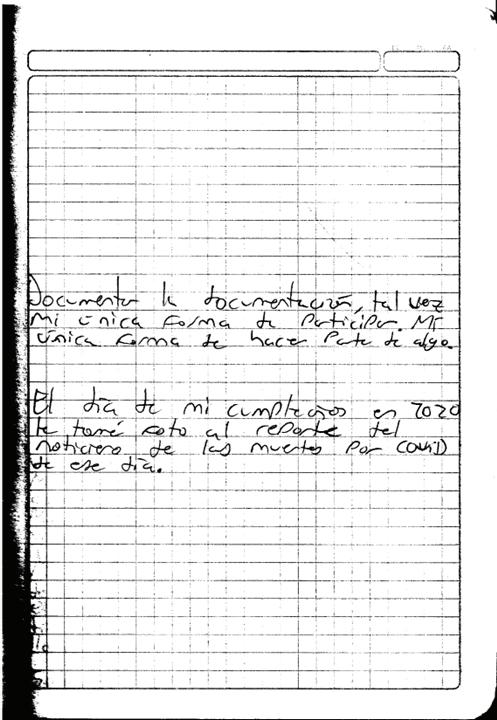 Documentar la documentación, tal vez
mi única forma de participar. Mi
única forma de hacer parte de algo.
El día de mi cumpleaños en 2020
le tomé foto al reporte del
noticiero de las muertes por COVID
de ese día.